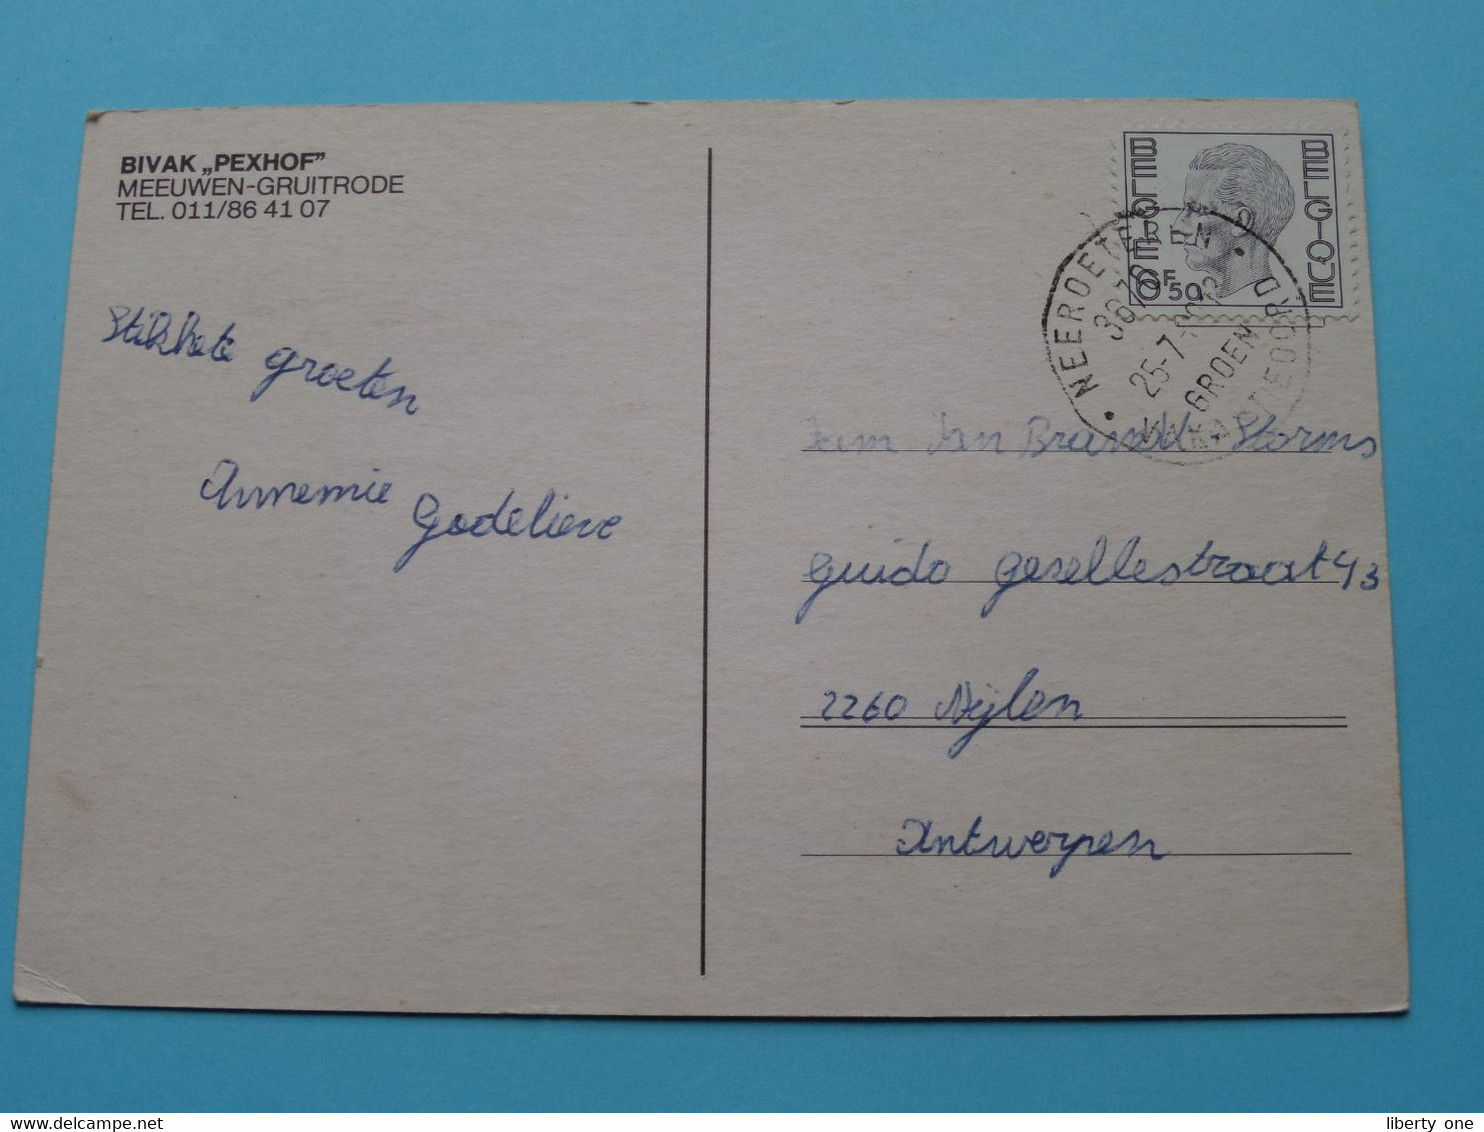 BIVAK „PEXHOF”
MEEUWEN-GRUITRODE
TEL. 011/86 41 07
BELGIË
BELGIQUE
6F50
NEEROETEREN
3670
25-7
GROEN
VAKANTIEOORD
Stikhete groeten
Annemie Godelieve
Fam Jan Brandt - Storms
Guido Gesellestraat 43
2260 Nijlen
Antwerpen
liberty one